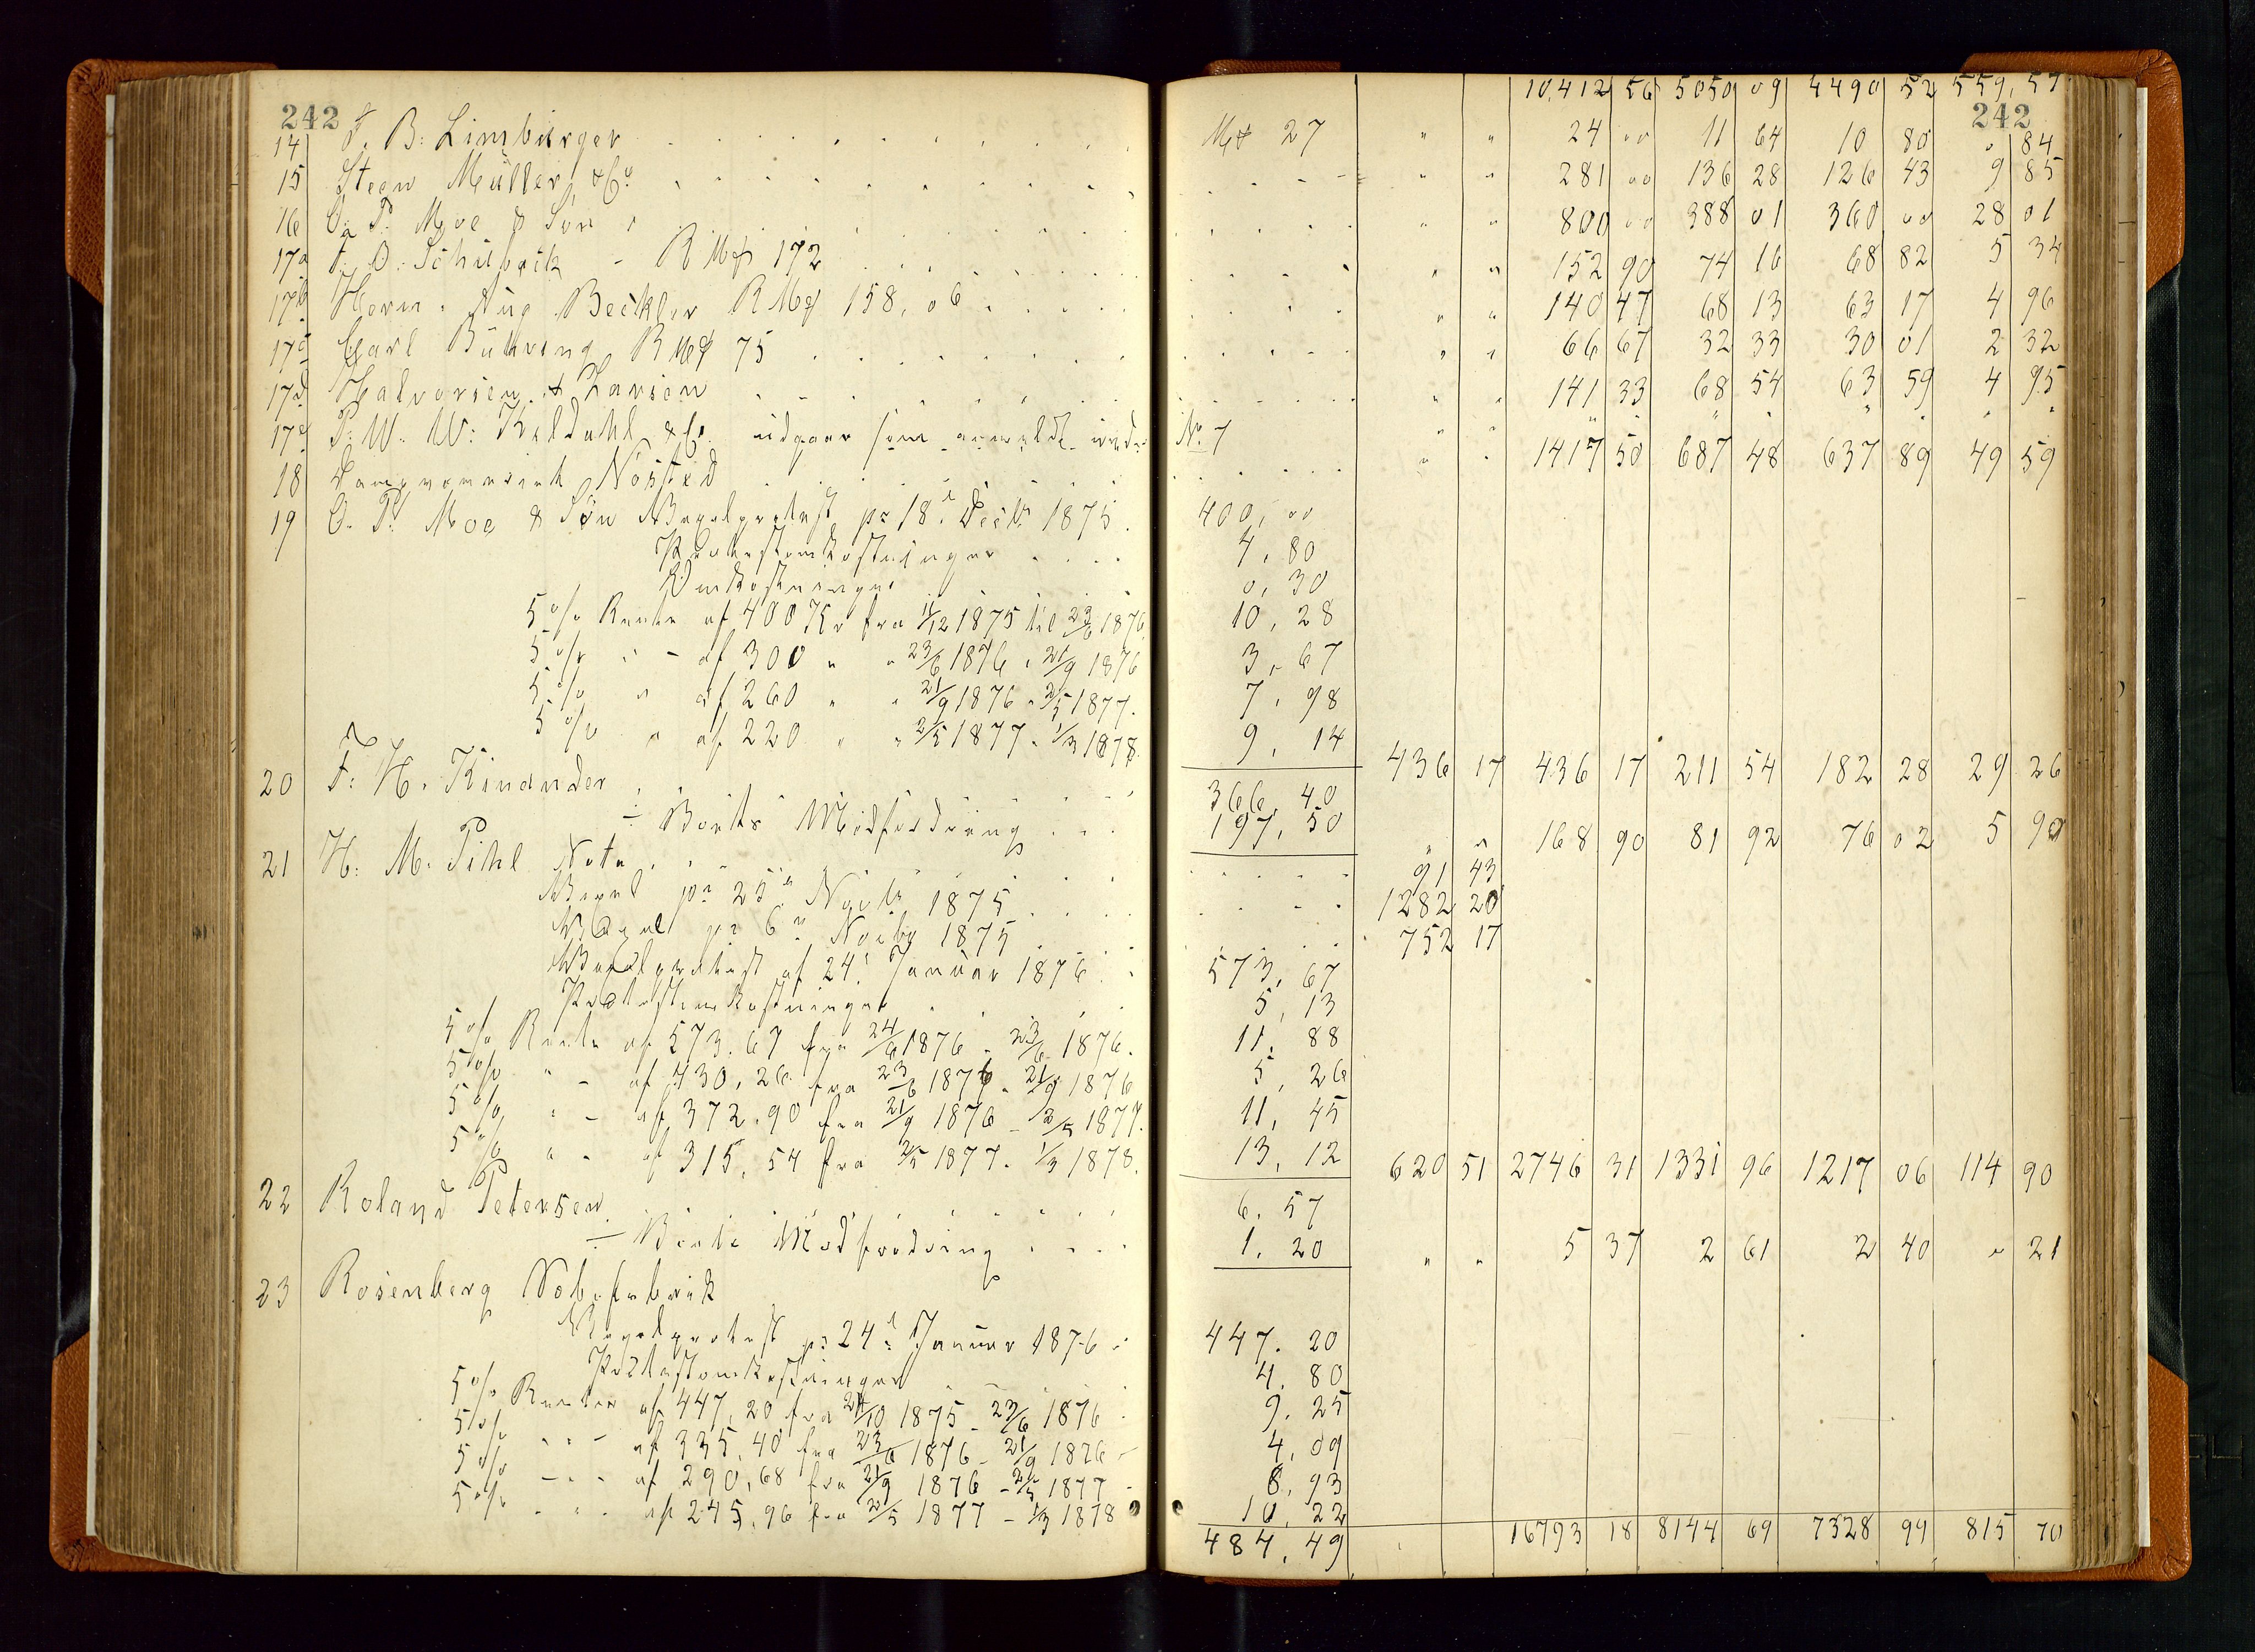 242
10,412 56 5050 09 4490 52 559,57
242
14 F. B. Limburger . . . M# 27 " " 24 00 11 64 10 80 0 84
15 Steen Müller & Co . . . " " 281 00 136 28 126 43 9 85
16 O. P. Moe & Søn . . . " " 800 00 388 01 360 00 28 01
17a F. D. Schilbeck - RM# 172 . . . " " 152 90 74 16 68 82 5 34
17b Herm. Aug. Beckler RM# 158,06 . . . " " 140 47 68 13 63 17 4 96
17c Carl Bühring RM# 75 . . . " " 66 67 32 33 30 01 2 32
17d Halvorsen & Larsen . . . " " 141 33 68 54 63 59 4 95
17e P. W. W. Kaldahl & Co. udgaar som anmeldt under No 7 " " " " " " " " " "
18 Nøsted . . . " " 1417 50 687 48 637 89 49 59
19 O. P. Moe & Søn Vexelprotest pr 18d Decbr 1875 . 400,00
Protestomkostninger . . . 4,80
Omkostninger 0,30
5 % Rente af 400 Kr fra 11/12 1875 til 23/6 1876 10,28
5 % " - af 300 " " 23/6 1876 " 21/9 1876 3,67
5 % " " af 260 " " 21/9 1876 " 2/5 1877. 7,98
5 % " af 220 " " 2/5 1877 " 1/3 1878. 9,14 436 17 436 17 211 54 182 28 29 26
20 F. H. Kinander . . . 366,40
÷ Boets Modfordring . . . 197,50 " " 168 90 81 92 76 02 5 90
21 H. M. Pihl Nota . . . 91 43
Vexel pr 25d Novbr 1875 . . . 1282 20
Vexel pr 6d Novbr 1875 . . . 752 17
Vexelprotest af 24d Januar 1876 . . 573,67
Protestomkostninger . . . 5,13
5 % Rente af 573,67 fra 24/6 1876 - 23/6 1876. 11,88
5 % " - af 430,26 fra 23/6 1876 - 21/9 1876 5,26
5 % " - af 372,90 fra 21/9 1876 - 2/5 1877. 11,45
5 % " - af 315,54 fra 2/5 1877 - 1/3 1878. 13,12 620 51 2746 31 1331 96 1217 06 114 90
22 Roland Petersen . . . 6,57
÷ Boets Modfordring . . . 1,20 " " 5 37 2 61 2 40 " 21
23 Rosenberg Æbefabrik
Vexelprotest pr 24d Januar 1876 . 447.20
Protestomkostninger 4.80
5 % Renter af 447,20 fra 24/10 1875 - 23/6 1876 . 9.25
5 % " " - af 335,40 fra 23/6 1876 - 21/9 1876 - 4,09
5 % - " - af 290,68 fra 21/9 1876 - 2/5 1877 - 8,93
5 % - " - af 245,96 fra 2/5 1877 - 1/3 1878 10,22
484,49 16793 18 8144 69 7328 99 815 70